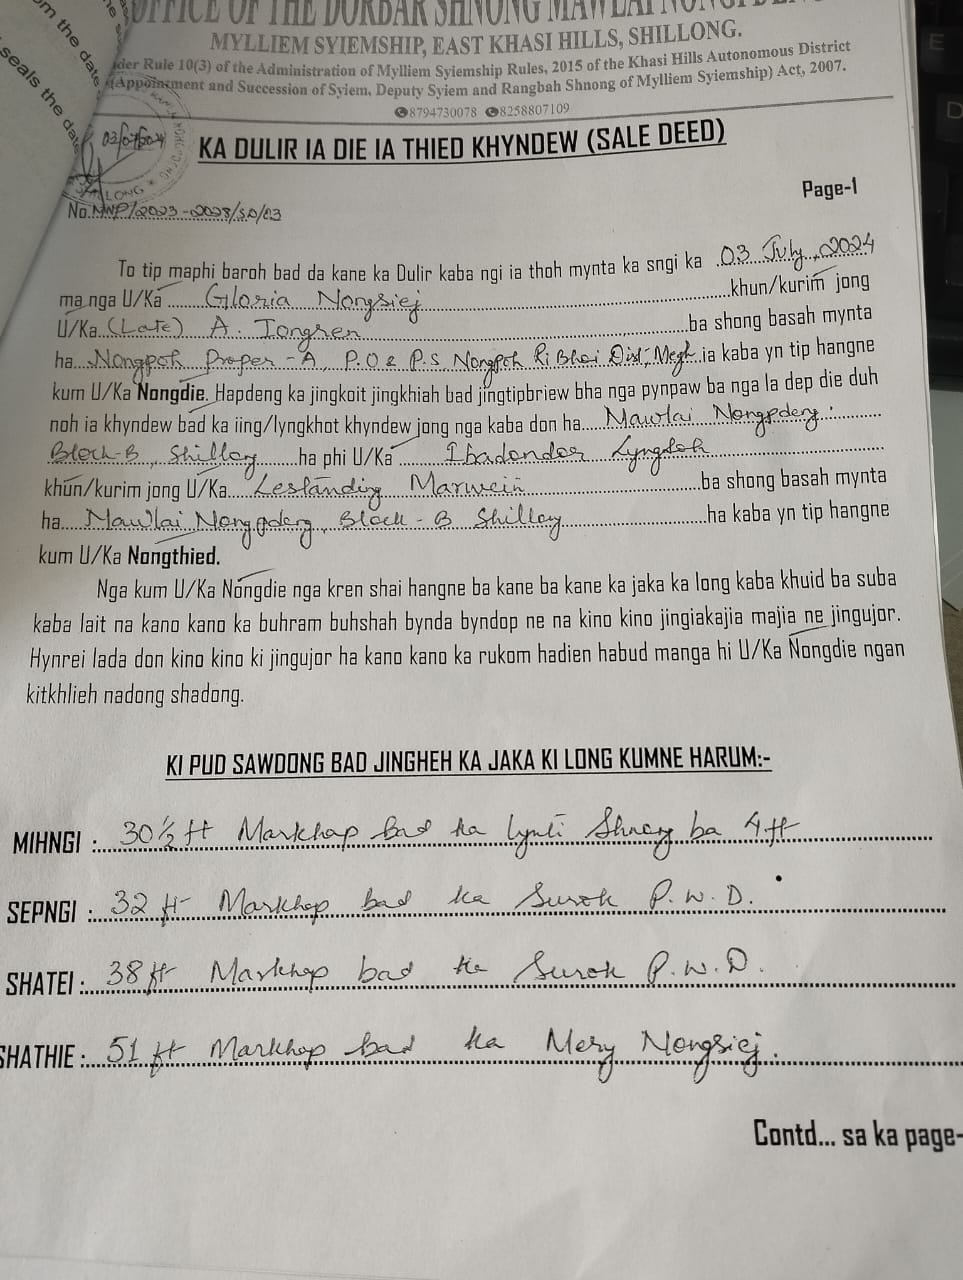 om the date
seals the da
OFFICE OF THE DORBAR SHNONG MAWLAI NONGPDENG
MYLLIEM SYIEMSHIP, EAST KHASI HILLS, SHILLONG.
der Rule 10(3) of the Administration of Mylliem Syiemship Rules, 2015 of the Khasi Hills Autonomous District
(Appointment and Succession of Syiem, Deputy Syiem and Rangbah Shnong of Mylliem Syiemship) Act, 2007.
8794730078 8258807109
03/07/2024
LONG
KA DULIR IA DIE IA THIED KHYNDEW (SALE DEED)
Page-1
No.MNP/2023-2028/SD/03
To tip maphi baroh bad da kane ka Dulir kaba ngi ia thoh mynta ka sngi ka 03 July, 2024
ma nga U/Ka Gloria Nongsiej khun/kurim jong
U/Ka (Late) A. Iongren ba shong basah mynta
ha Nongpoh Proper - A, P.O & P.S Nongpoh Ri Bhoi Dist, Megh. ia kaba yn tip hangne
kum U/Ka Nongdie. Hapdeng ka jingkoit jingkhiah bad jingtipbriew bha nga pynpaw ba nga la dep die duh
noh ia khyndew bad ka iing/lyngkhot khyndew jong nga kaba don ha Mawlai Nongpdeng
Block-B, Shillong ha phi U/Ka Ibadondor Lyngdoh
khun/kurim jong U/Ka Leslanding Marwein ba shong basah mynta
ha Mawlai Nongpdeng, Block - B Shillong ha kaba yn tip hangne
kum U/Ka Nongthied.
Nga kum U/Ka Nongdie nga kren shai hangne ba kane ba kane ka jaka ka long kaba khuid ba suba
kaba lait na kano kano ka buhram buhshah bynda byndop ne na kino kino jingiakajia majia ne jingujor.
Hynrei lada don kino kino ki jingujor ha kano kano ka rukom hadien habud manga hi U/Ka Nongdie ngan
kitkhlieh nadong shadong.
KI PUD SAWDONG BAD JINGHEH KA JAKA KI LONG KUMNE HARUM:-
MIHNGI : 30½ ft Markhap bad ka lynti Shnong ba 4 ft
SEPNGI : 32 ft Markhap bad ka Surok P.W.D.
SHATEI : 38 ft Markhap bad ka Surok P.W.D.
SHATHIE : 51 ft Markhap bad ka Mery Nongsiej.
Contd... sa ka page-